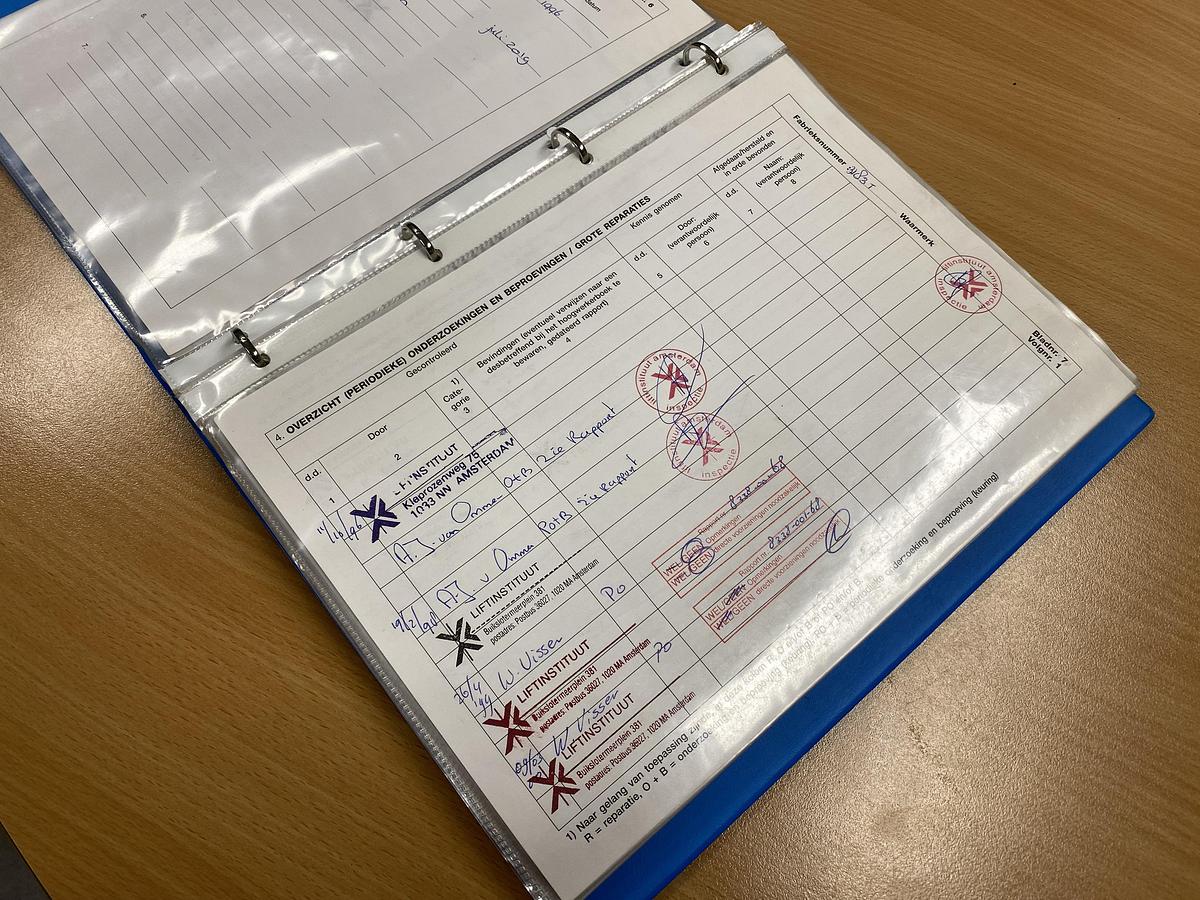 6
datum
1996
juli 2019
7.
Fabrieksnummer
Waarmerk
4. OVERZICHT (PERIODIEKE) ONDERZOEKINGEN EN BEPROEVINGEN / GROTE REPARATIES
Gecontroleerd
Kennis genomen
Afgedaan/hersteld en
in orde bevonden
d.d.
Door
1)
Cate-
gorie
3
Bevindingen (eventueel verwijzen naar een
desbetreffend bij het hoogwerkerboek te
bewaren, gedateerd rapport)
4
d.d.
Door:
(verantwoordelijk
persoon)
6
d.d.
Naam:
(verantwoordelijk
persoon)
8
1
2
5
7
LIFTINSTITUUT
Klaprozenweg 75
1033 NN AMSTERDAM
A.J. van Omme O+B zie Rapport
liftinstituut amsterdam
inspectie
A.J. v Omme PO+B zie Rapport
liftinstituut amsterdam
inspectie
LIFTINSTITUUT
Buikslotermeerplein 381
postadres: Postbus 36027, 1020 MA Amsterdam
W. Visser PO
Rapport nr. 8238-001-68
WEL/GEEN Opmerkingen
WEL/GEEN directe voorzieningen noodzakelijk
LIFTINSTITUUT
Buikslotermeerplein 381
postadres: Postbus 36027, 1020 MA Amsterdam
W Visser PO
Rapport nr. 8238-001-68
WEL/GEEN Opmerkingen
WEL/GEEN directe voorzieningen
LIFTINSTITUUT
Buikslotermeerplein 381
postadres: Postbus 36027, 1020 MA Amsterdam
liftinstituut amsterdam
inspectie
Bladnr. 7
Volgnr. 1
1) Naar gelang van toepassing zijnde, in deze kolom R, O en/of B of PO en/of B
R = reparatie, O + B = onderzoek en beproeving (keuring)